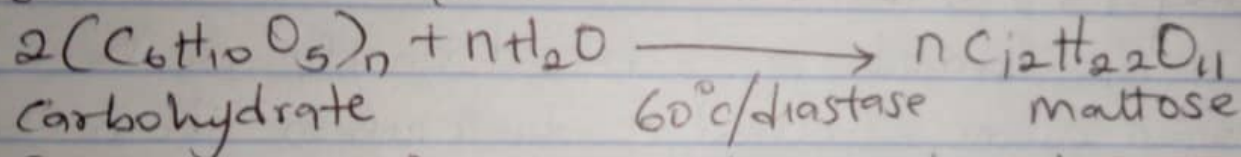 2(C₆H₁₀O₅)ₙ + nH₂O ⟶ nC₁₂H₂₂O₁₁
Carbohydrate 60°c/diastase maltose